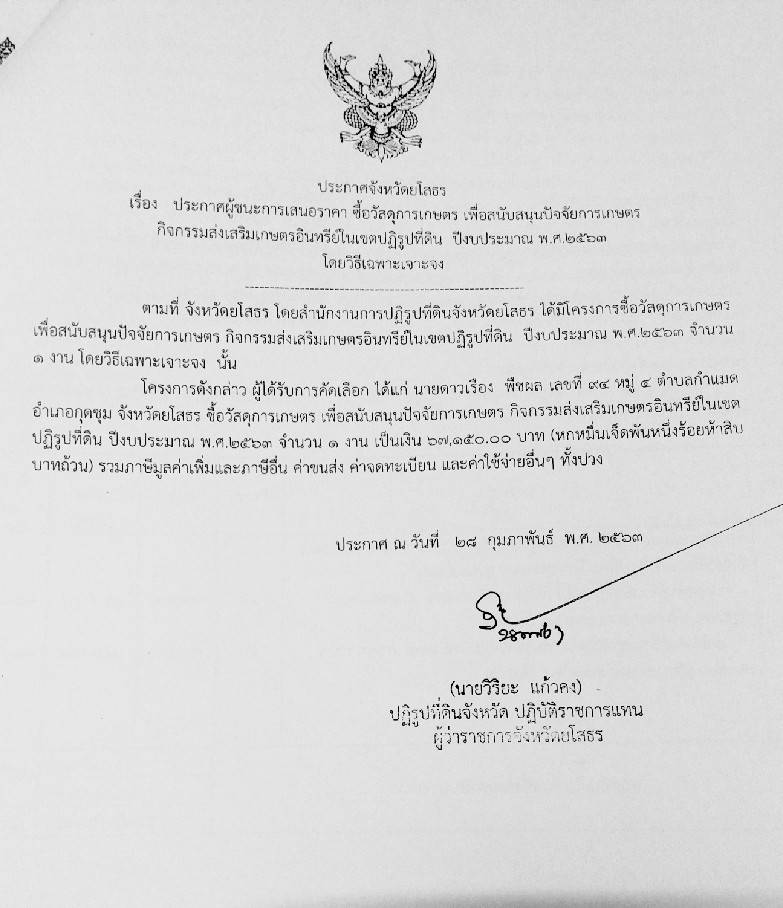 ประกาศจังหวัดยโสธร
เรื่อง ประกาศผู้ชนะการเสนอราคา ซื้อวัสดุการเกษตร เพื่อสนับสนุนปัจจัยการเกษตร
กิจกรรมส่งเสริมเกษตรอินทรีย์ในเขตปฏิรูปที่ดิน ปีงบประมาณ พ.ศ.๒๕๖๓
โดยวิธีเฉพาะเจาะจง
ตามที่ จังหวัดยโสธร โดยสำนักงานการปฏิรูปที่ดินจังหวัดยโสธร ได้มีโครงการซื้อวัสดุการเกษตร
เพื่อสนับสนุนปัจจัยการเกษตร กิจกรรมส่งเสริมเกษตรอินทรีย์ในเขตปฏิรูปที่ดิน ปีงบประมาณ พ.ศ.๒๕๖๓ จำนวน
๑ งาน โดยวิธีเฉพาะเจาะจง นั้น
โครงการดังกล่าว ผู้ได้รับการคัดเลือก ได้แก่ นายดาวเรือง พืชผล เลขที่ ๙๔ หมู่ ๔ ตำบลกำแมด
อำเภอกุดชุม จังหวัดยโสธร ซื้อวัสดุการเกษตร เพื่อสนับสนุนปัจจัยการเกษตร กิจกรรมส่งเสริมเกษตรอินทรีย์ในเขต
ปฏิรูปที่ดิน ปีงบประมาณ พ.ศ.๒๕๖๓ จำนวน ๑ งาน เป็นเงิน ๖๗,๑๕๐.๐๐ บาท (หกหมื่นเจ็ดพันหนึ่งร้อยห้าสิบ
บาทถ้วน) รวมภาษีมูลค่าเพิ่มและภาษีอื่น ค่าขนส่ง ค่าจดทะเบียน และค่าใช้จ่ายอื่นๆ ทั้งปวง
ประกาศ ณ วันที่ ๒๘ กุมภาพันธ์ พ.ศ. ๒๕๖๓
(นายวิริยะ แก้วคง)
ปฏิรูปที่ดินจังหวัด ปฏิบัติราชการแทน
ผู้ว่าราชการจังหวัดยโสธร